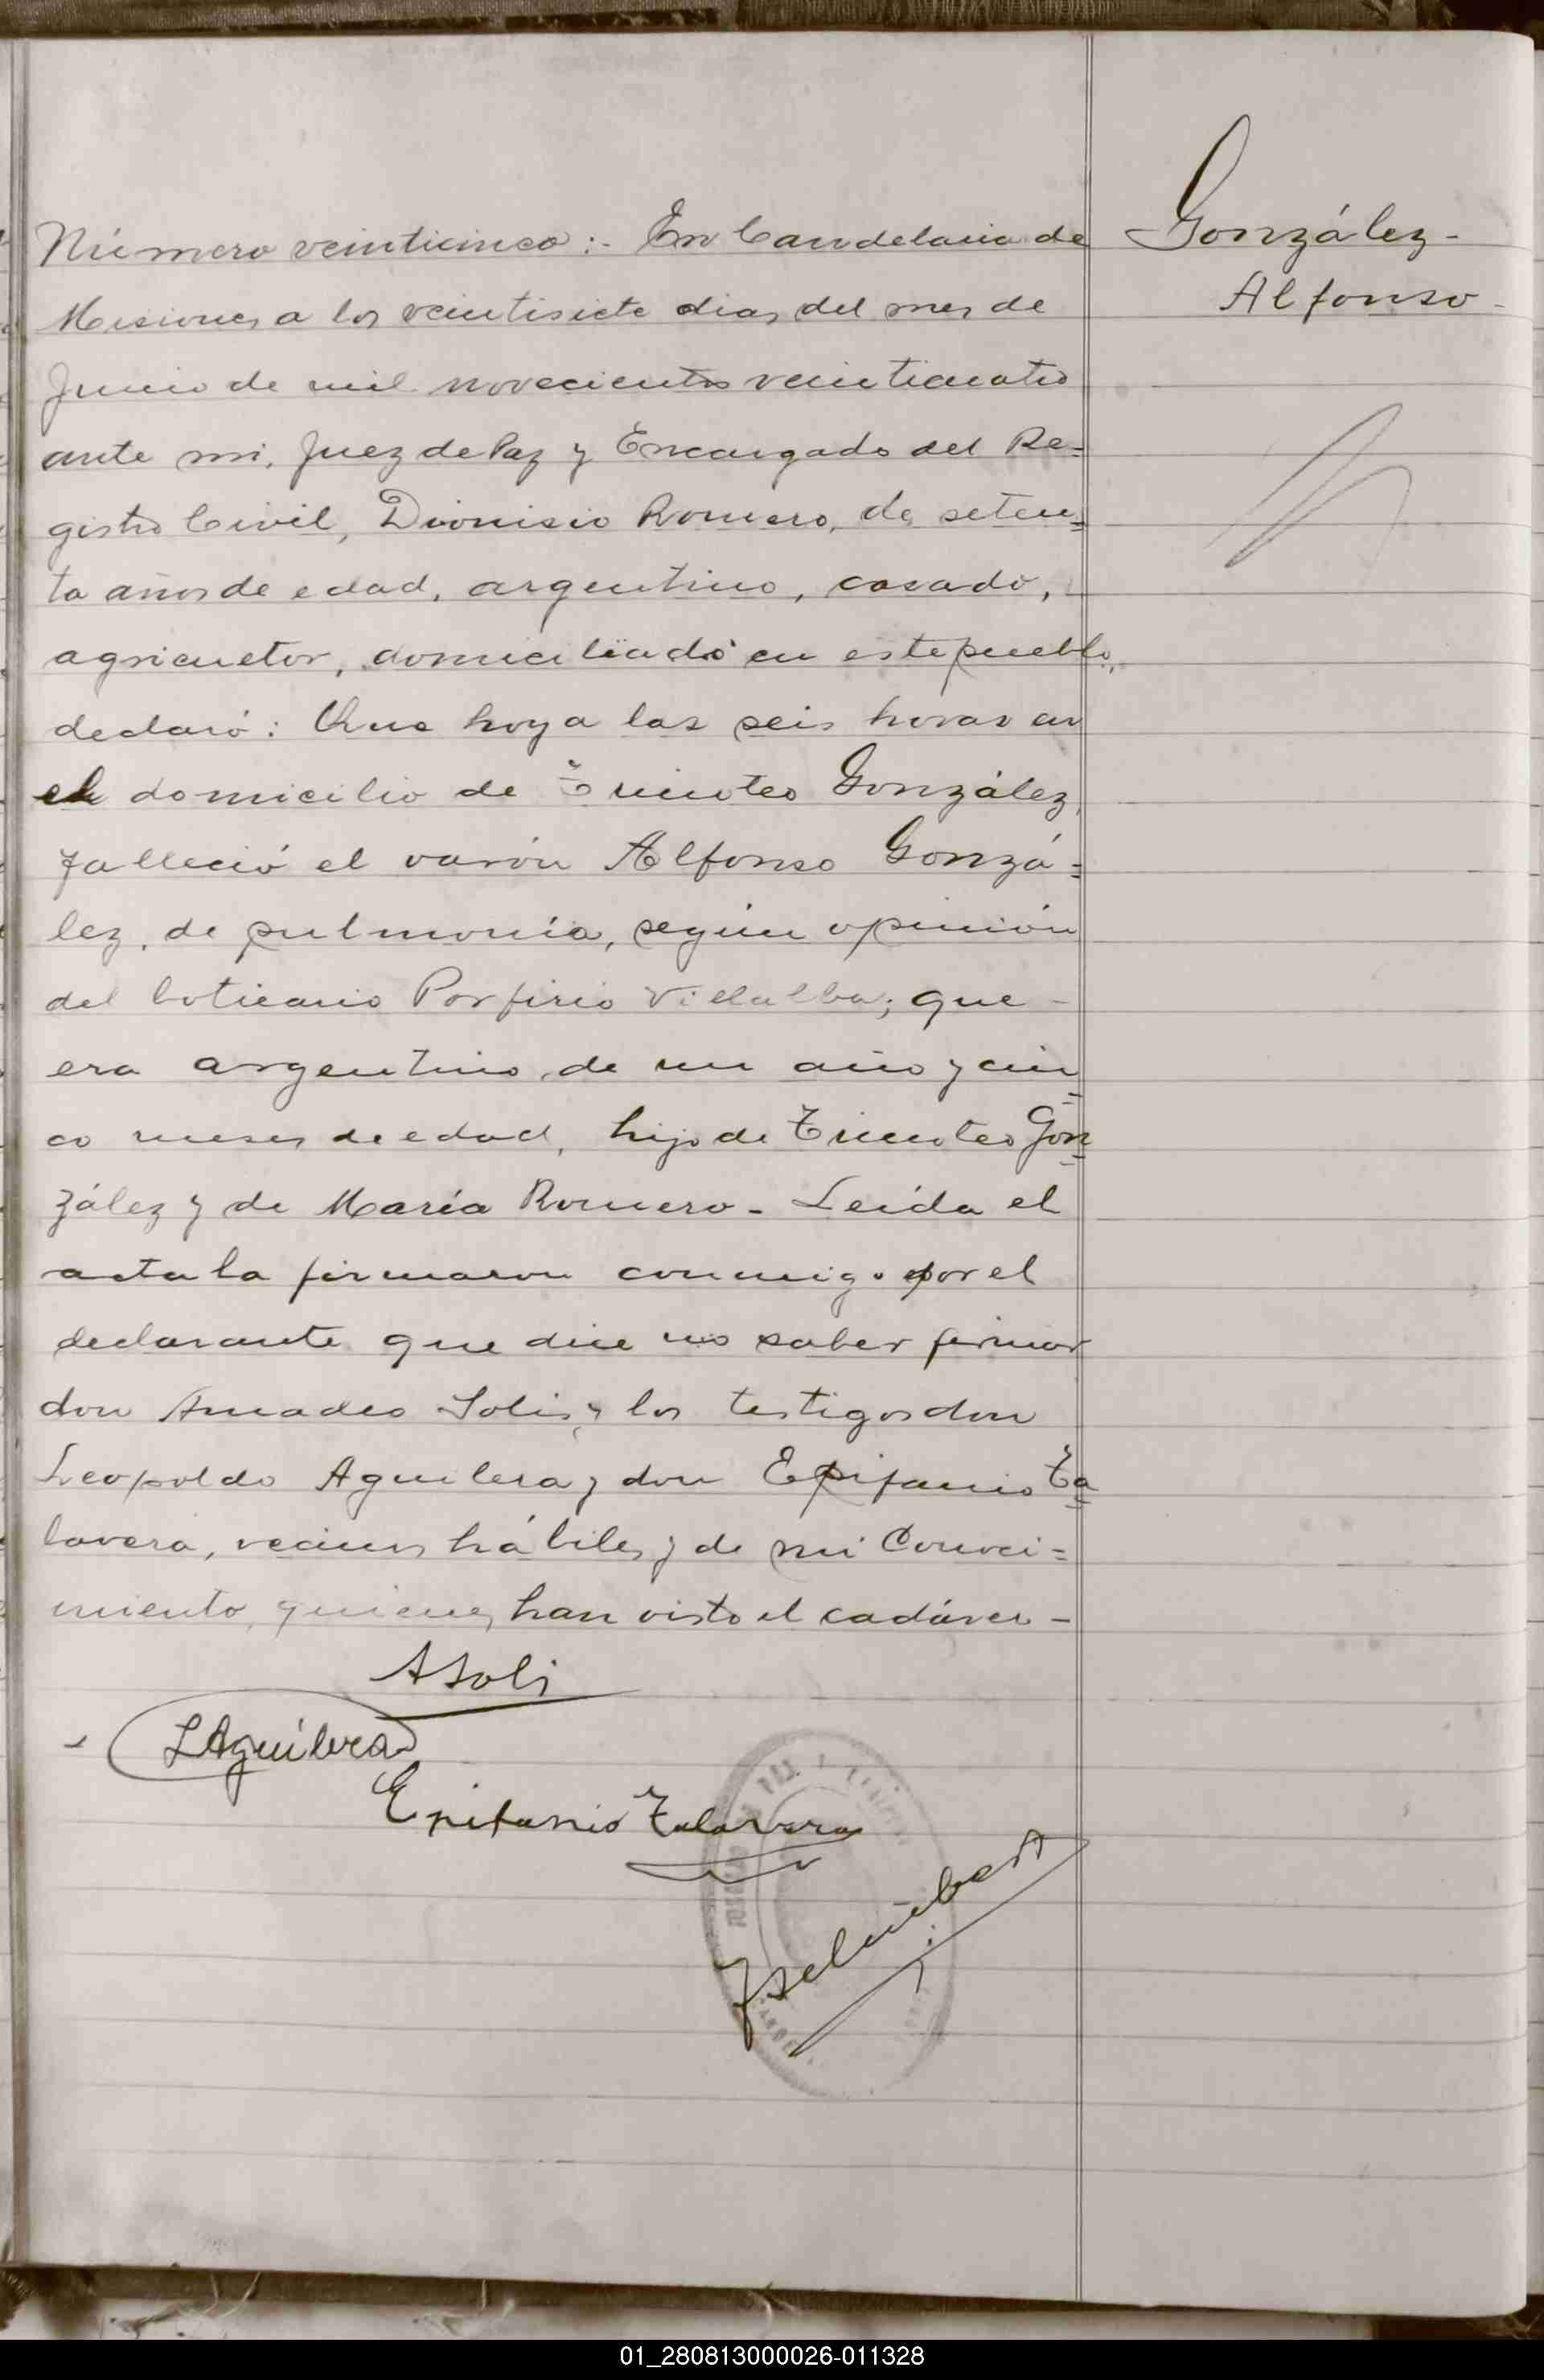 Número veinticinco:- En Candelaria de
Misiones a los veintisiete dias del mes de
Junio de mil novecientos veinticuatro
ante mi, Juez de Paz y Encargado del Re=
gistro Civil, Dionisio Romero, de seten=
ta años de edad, argentino, casado,
agricultor, domiciliado en este pueblo,
declaró: Que hoy a las seis horas en
el domicilio de Timoteo González,
falleció el varón Alfonso Gonzá=
lez, de pulmonía, según opinión
del boticario Porfirio Villalba; que -
era argentino, de un año y cin=
co meses de edad, hijo de Timoteo Gon=
zález y de María Romero - Leída el
acta la firmaron conmigo por el
declarante que dice no saber firmar
don Amadeo Solis y los testigos don
Leopoldo Aguilera y don Epifanio Ta=
lavera, vecinos hábiles y de mi Conoci=
miento, quienes han visto el cadáver -
González -
Alfonso -
ASolis
LAguilera
Epifanio Talavera
01_280813000026-011328